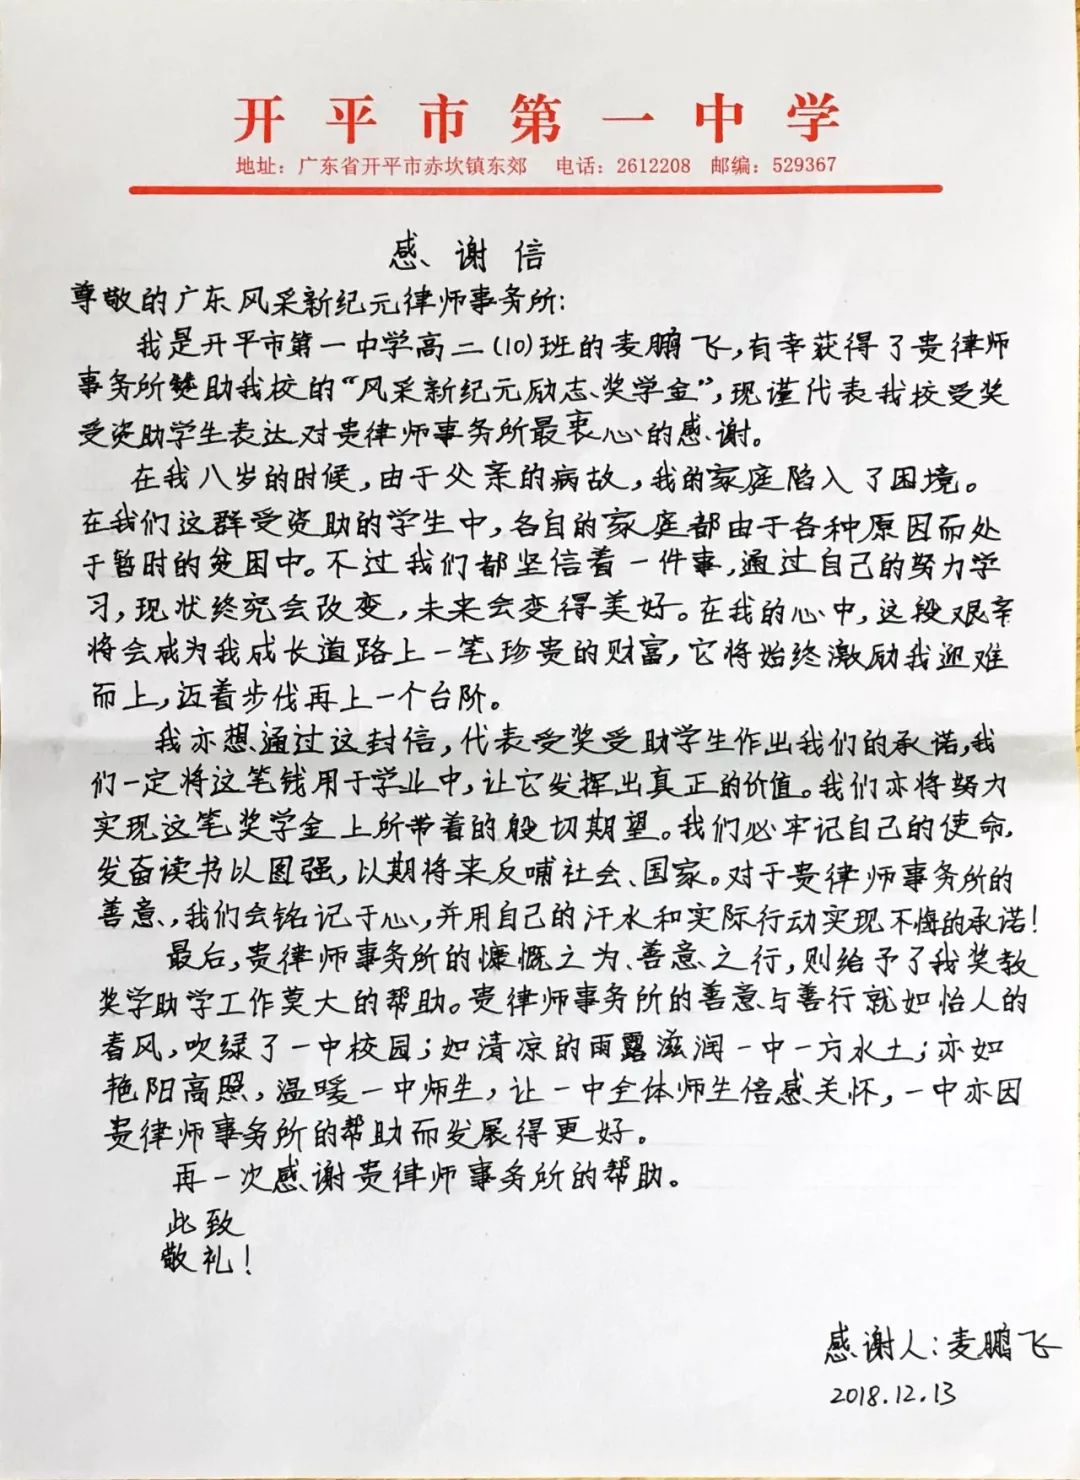 开平市第一中学
地址：广东省开平市赤坎镇东郊 电话：2612208 邮编：529367
感谢信
尊敬的广东风采新纪元律师事务所：
我是开平市第一中学高二(10)班的麦鹏飞，有幸获得了贵律师
事务所赞助我校的“风采新纪元励志奖学金”，现谨代表我校受奖
受资助学生表达对贵律师事务所最衷心的感谢。
在我八岁的时候，由于父亲的病故，我的家庭陷入了困境。
在我们这群受资助的学生中，各自的家庭都由于各种原因而处
于暂时的贫困中。不过我们都坚信着一件事，通过自己的努力学
习，现状终究会改变，未来会变得美好。在我的心中，这段艰辛
将会成为我成长道路上一笔珍贵的财富，它将始终激励我迎难
而上，迈着步伐再上一个台阶。
我亦想通过这封信，代表受奖受助学生作出我们的承诺，我
们一定将这笔钱用于学业中，让它发挥出真正的价值。我们亦将努力
实现这笔奖学金上所带着的殷切期望。我们必牢记自己的使命，
发奋读书以图强，以期将来反哺社会、国家。对于贵律师事务所的
善意，我们会铭记于心，并用自己的汗水和实际行动实现不悔的承诺！
最后，贵律师事务所的慷慨之为、善意之行，则给予了我奖教
奖学助学工作莫大的帮助。贵律师事务所的善意与善行就如怡人的
春风，吹绿了一中校园；如清凉的雨露滋润一中一方水土；亦如
艳阳高照，温暖一中师生，让一中全体师生倍感关怀，一中亦因
贵律师事务所的帮助而发展得更好。
再一次感谢贵律师事务所的帮助。
此致
敬礼！
感谢人：麦鹏飞
2018.12.13